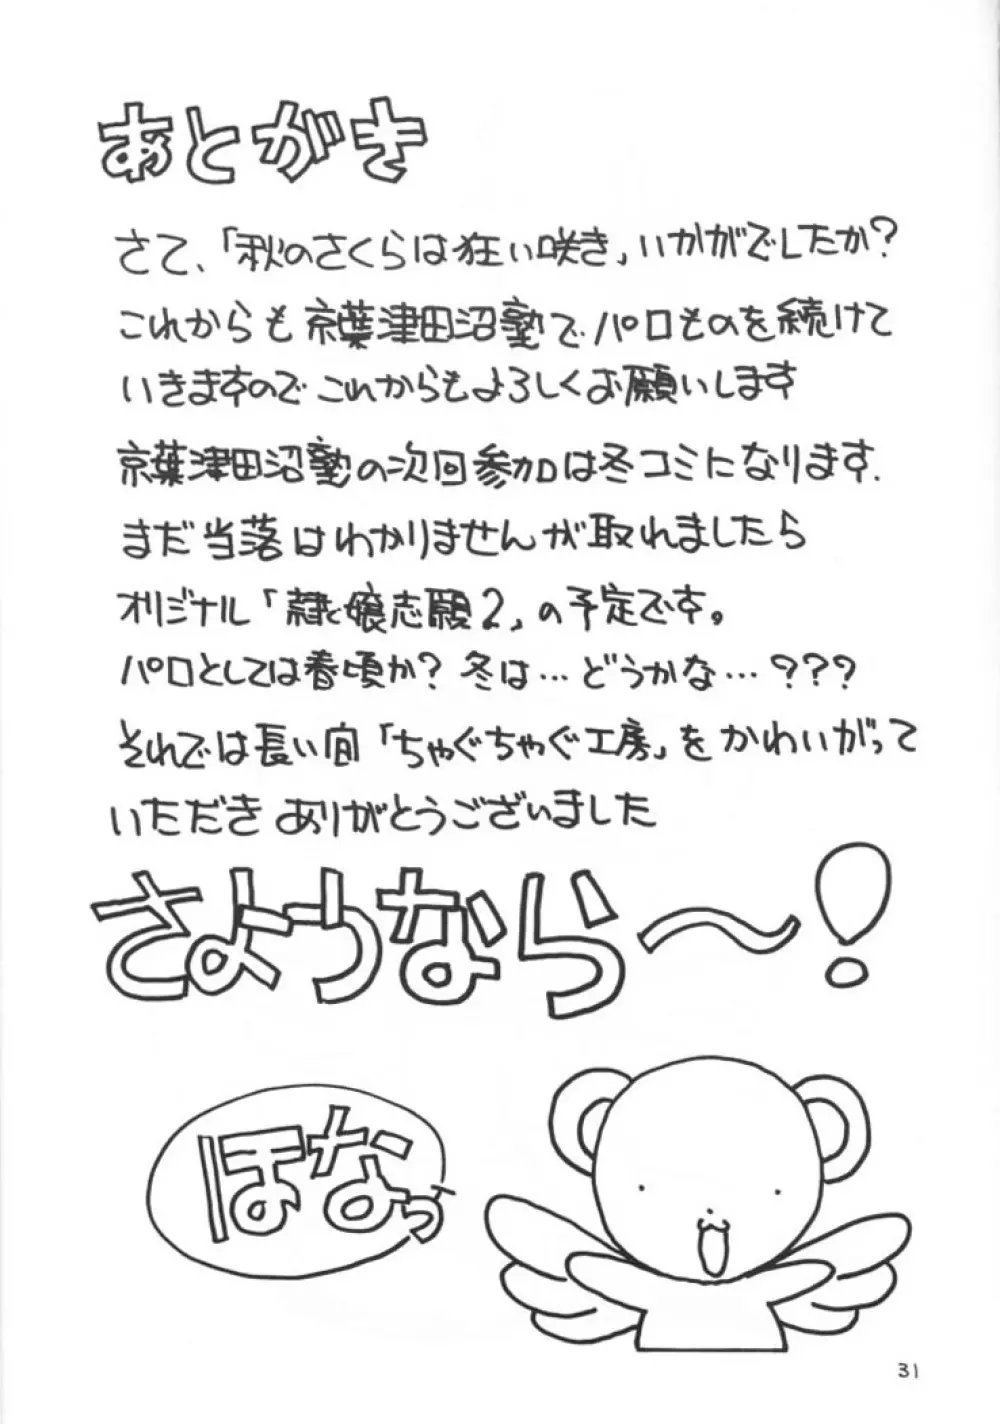 あとがき
さて、「秋のさくらは狂い咲き」いかがでしたか？
これからも京葉津田沼塾でパロものを続けて
いきますのでこれからもよろしくお願いします
京葉津田沼塾の次回参加は冬コミになります.
まだ当落はわかりませんが取れましたら
オリジナル「 娘志願2」の予定です。
パロとしては春頃か？冬は…どうかな…???
それでは長い間「ちゃぐちゃぐ工房」をかわいがって
いただきありがとうございました
さようなら〜!
ほなっ
31